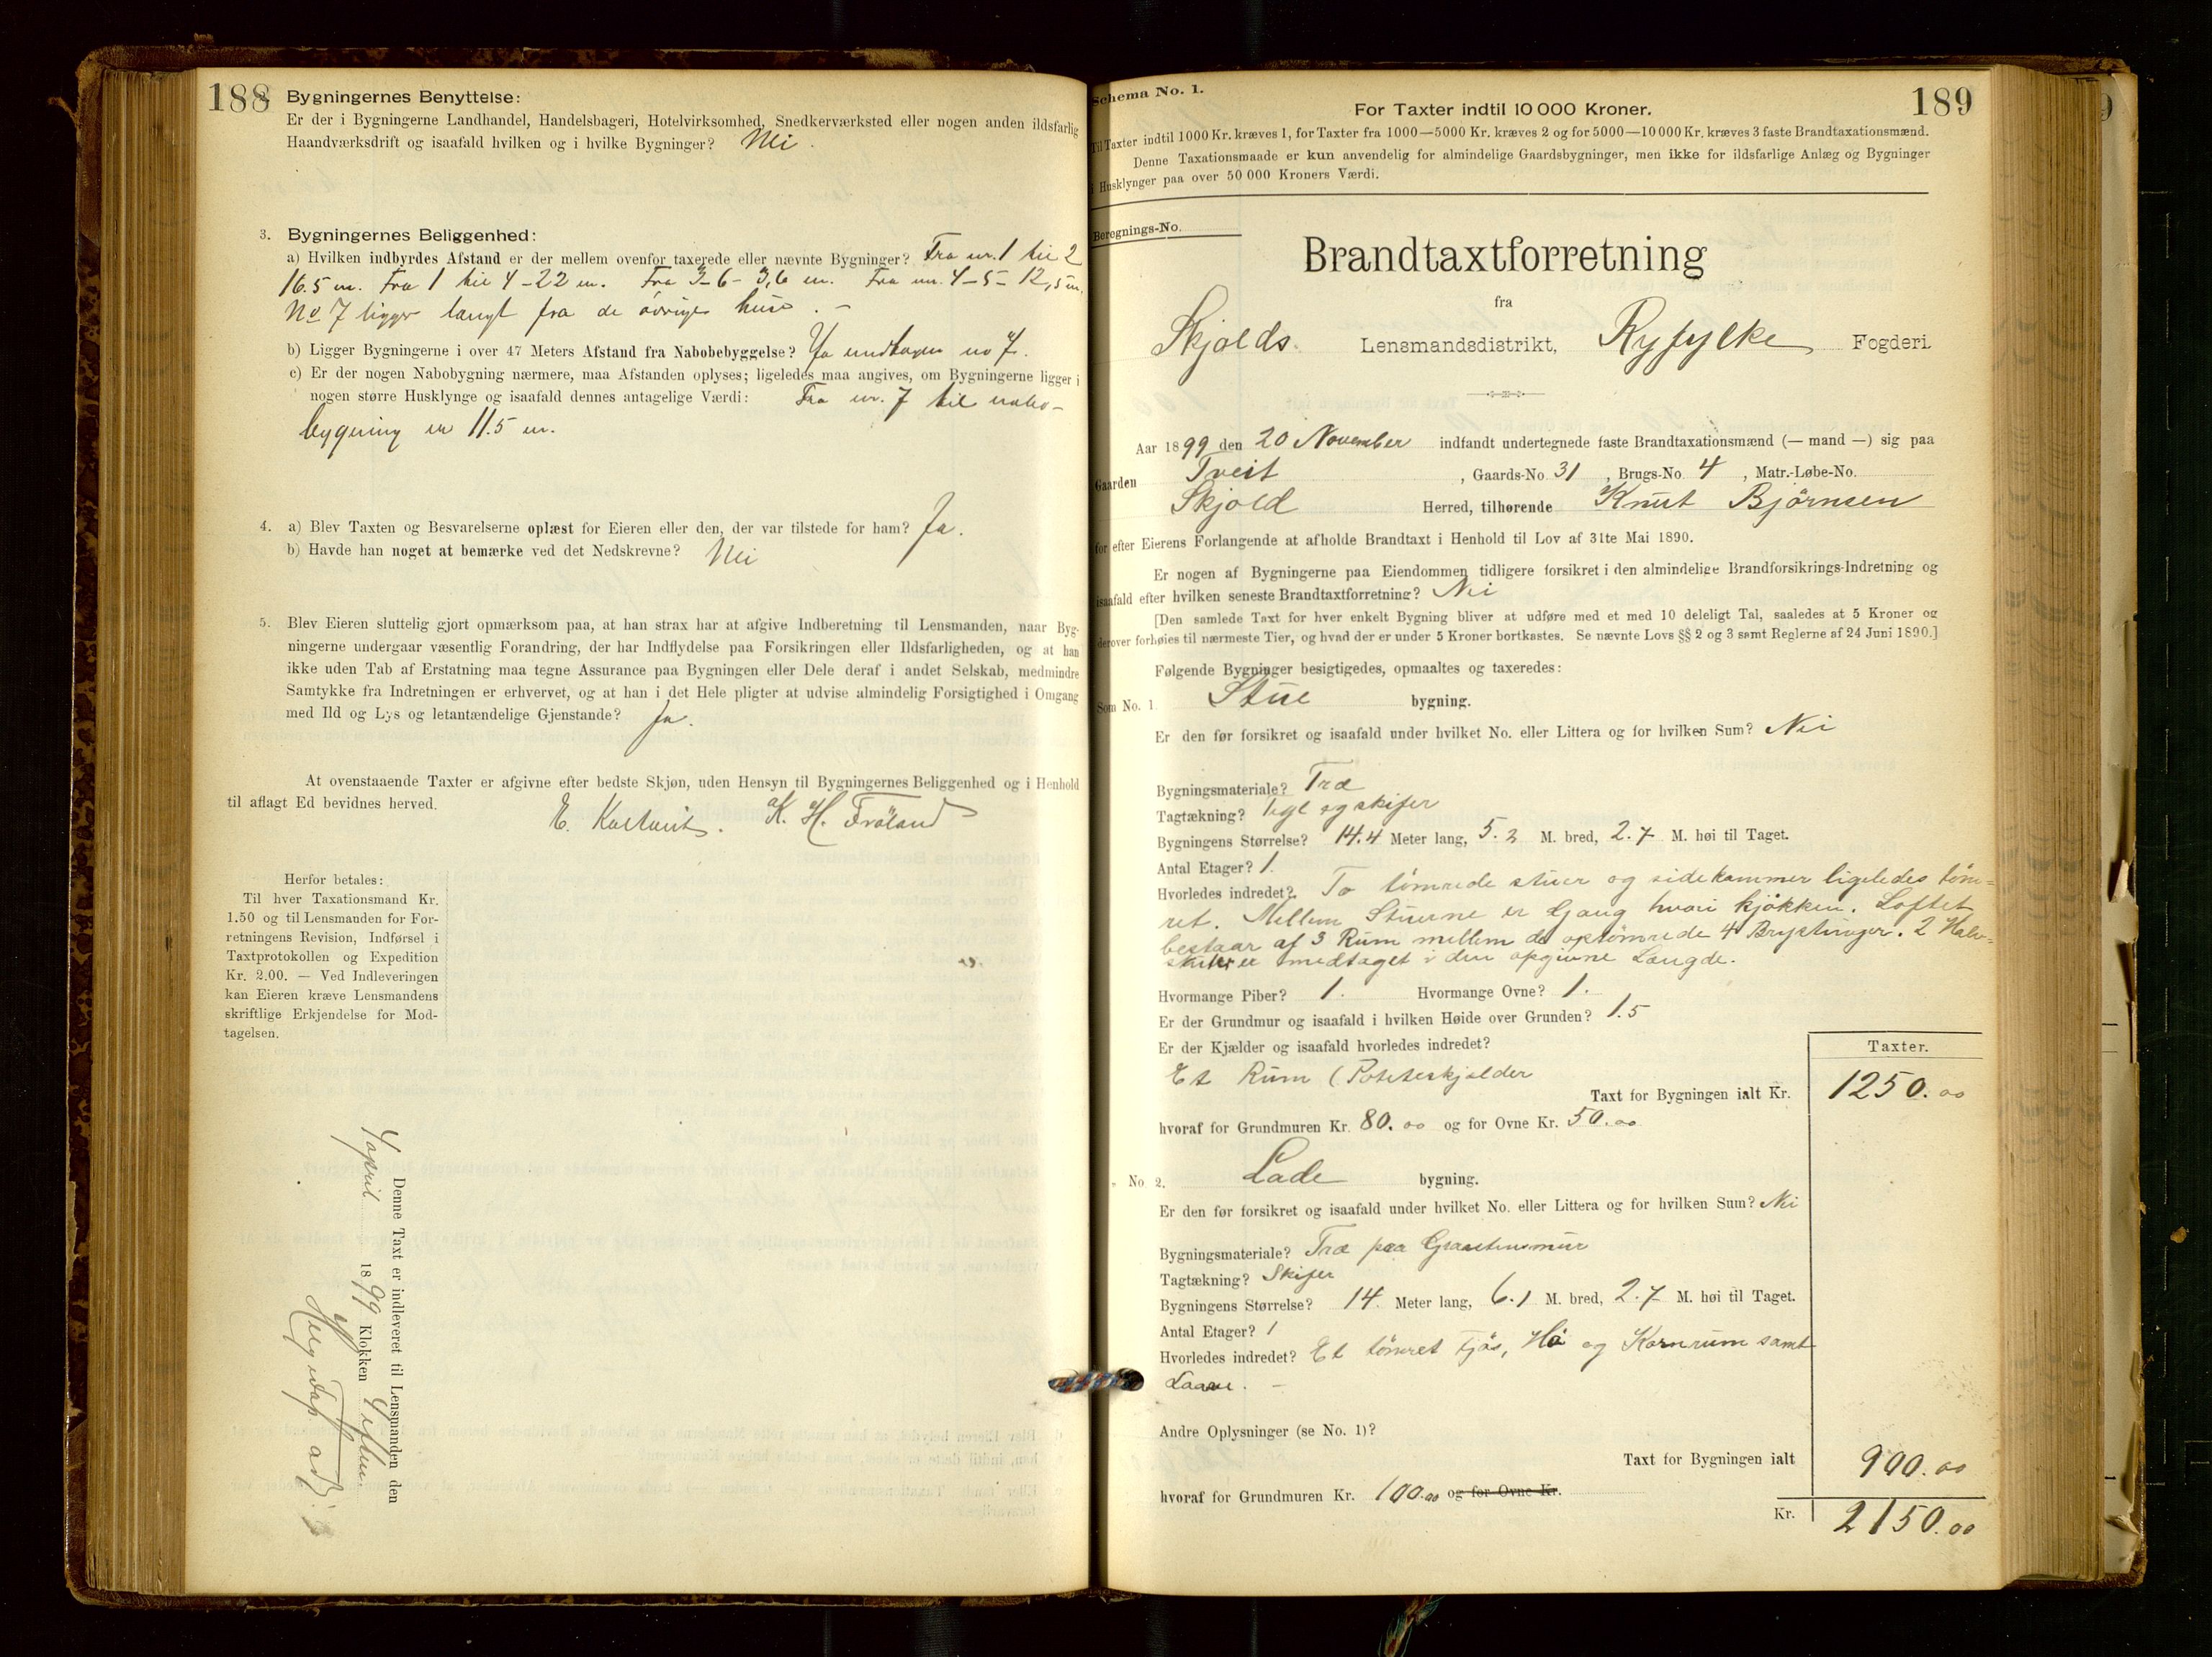 188
Bygningernes Benyttelse:
Er der i Bygningerne Landhandel, Handelsbageri, Hotelvirksomhed, Snedkerværksted eller nogen anden ildsfarlig
Haandværksdrift og isaafald hvilken og i hvilke Bygninger? Nei.
3. Bygningernes Beliggenhed:
a) Hvilken indbyrdes Afstand er der mellem ovenfor taxerede eller nævnte Bygninger? Fra nr. 1 til 2
16.5 m. Fra 1 til 4 - 22 m. Fra 3-6- 3,6 m. Fra nr. 4-5- 12,5 m.
No 7 ligger langt fra de øvrige huse. -
b) Ligger Bygningerne i over 47 Meters Afstand fra Nabobebyggelse? Ja undtagen no 7.
c) Er der nogen Nabobygning nærmere, maa Afstanden oplyses; ligeledes maa angives, om Bygningerne ligger i
nogen større Husklynge og isaafald dennes antagelige Værdi: Fra nr. 7 til nabo-
bygning er 11.5 m.
4. a) Blev Taxten og Besvarelserne oplæst for Eieren eller den, der var tilstede for ham? Ja.
b) Havde han noget at bemærke ved det Nedskrevne? Nei
5. Blev Eieren sluttelig gjort opmærksom paa, at han strax har at afgive Indberetning til Lensmanden, naar Byg-
ningerne undergaar væsentlig Forandring, der har Indflydelse paa Forsikringen eller Ildsfarligheden, og at han
ikke uden Tab af Erstatning maa tegne Assurance paa Bygningen eller Dele deraf i andet Selskab, medmindre
Samtykke fra Indretningen er erhvervet, og at han i det Hele pligter at udvise almindelig Forsigtighed i Omgang
med Ild og Lys og letantændelige Gjenstande? Ja.
At ovenstaaende Taxter er afgivne efter bedste Skjøn, uden Hensyn til Bygningernes Beliggenhed og i Henhold
til aflagt Ed bevidnes herved.
K. H. Frøland
Herfor betales:
Til hver Taxationsmand Kr.
1.50 og til Lensmanden for For-
retningens Revision, Indførsel i
Taxtprotokollen og Expedition
Kr. 2.00. — Ved Indleveringen
kan Eieren kræve Lensmandens
skriftlige Erkjendelse for Mod-
tagelsen.
Denne Taxt er indleveret til Lensmanden den
4 april 1899 Klokken 4 eftm.
189
Schema No. 1.
For Taxter indtil 10 000 Kroner.
Til Taxter indtil 1000 Kr. kræves 1, for Taxter fra 1000—5000 Kr. kræves 2 og for 5000—10 000 Kr. kræves 3 faste Brandtaxationsmænd.
Denne Taxationsmaade er kun anvendelig for almindelige Gaardsbygninger, men ikke for ildsfarlige Anlæg og Bygninger
i Husklynger paa over 50 000 Kroners Værdi.
Beregnings-No.
Brandtaxtforretning
fra
Skjolds Lensmandsdistrikt, Ryfylke Fogderi.
Aar 1899 den 20 November indfandt undertegnede faste Brandtaxationsmænd (— mand —) sig paa
Gaarden Tveit, Gaards-No. 31, Brugs-No. 4, Matr.-Løbe-No.
Skjold Herred, tilhørende Knut Bjørnsen
for efter Eierens Forlangende at afholde Brandtaxt i Henhold til Lov af 31te Mai 1890.
Er nogen af Bygningerne paa Eiendommen tidligere forsikret i den almindelige Brandforsikrings-Indretning og
isaafald efter hvilken seneste Brandtaxtforretning? Nei
[Den samlede Taxt for hver enkelt Bygning bliver at udføre med et med 10 deleligt Tal, saaledes at 5 Kroner og
derover forhøies til nærmeste Tier, og hvad der er under 5 Kroner bortkastes. Se nævnte Lovs §§ 2 og 3 samt Reglerne af 24 Juni 1890.]
Følgende Bygninger besigtigedes, opmaaltes og taxeredes:
Som No. 1. Stue bygning.
Er den før forsikret og isaafald under hvilket No. eller Littera og for hvilken Sum? Nei
Bygningsmateriale? Træ
Tagtækning? Tegl og skifer
Bygningens Størrelse? 14.4 Meter lang, 5.2 M. bred, 2.7 M. høi til Taget.
Antal Etager? 1.
Hvorledes indredet? To tømrede stuer og sidekammer ligeledes tøm-
ret. Mellem Stuerne er Gang hvori kjøkken. Loftet
bestaar af 3 Rum mellem de optømrede 4 Brystninger. 2 Halv-
skuter er medtaget i den opgivne Længde.
Hvormange Piber? 1. Hvormange Ovne? 1.
Er der Grundmur og isaafald i hvilken Høide over Grunden? 1.5
Er der Kjælder og isaafald hvorledes indredet?
Et Rum (Poteteskjelder
Taxter.
Taxt for Bygningen ialt Kr. 1250.00
hvoraf for Grundmuren Kr. 80.00 og for Ovne Kr. 50.00
No 2. Lade bygning.
Er den før forsikret og isaafald under hvilket No. eller Littera og for hvilken Sum? Nei
Bygningsmateriale? Træ paa Graastensmur
Tagtækning? Skifer
Bygningens Størrelse? 14. Meter lang, 6.1 M. bred, 2.7 M. høi til Taget.
Antal Etager? 1
Hvorledes indredet? Et tømret Fjøs, Hø og Kornrum samt
Laave. -
Andre Oplysninger (se No. 1)?
Taxt for Bygningen ialt 900.00
hvoraf for Grundmuren Kr. 100.00 og for Ovne Kr.
Kr. 2150.00